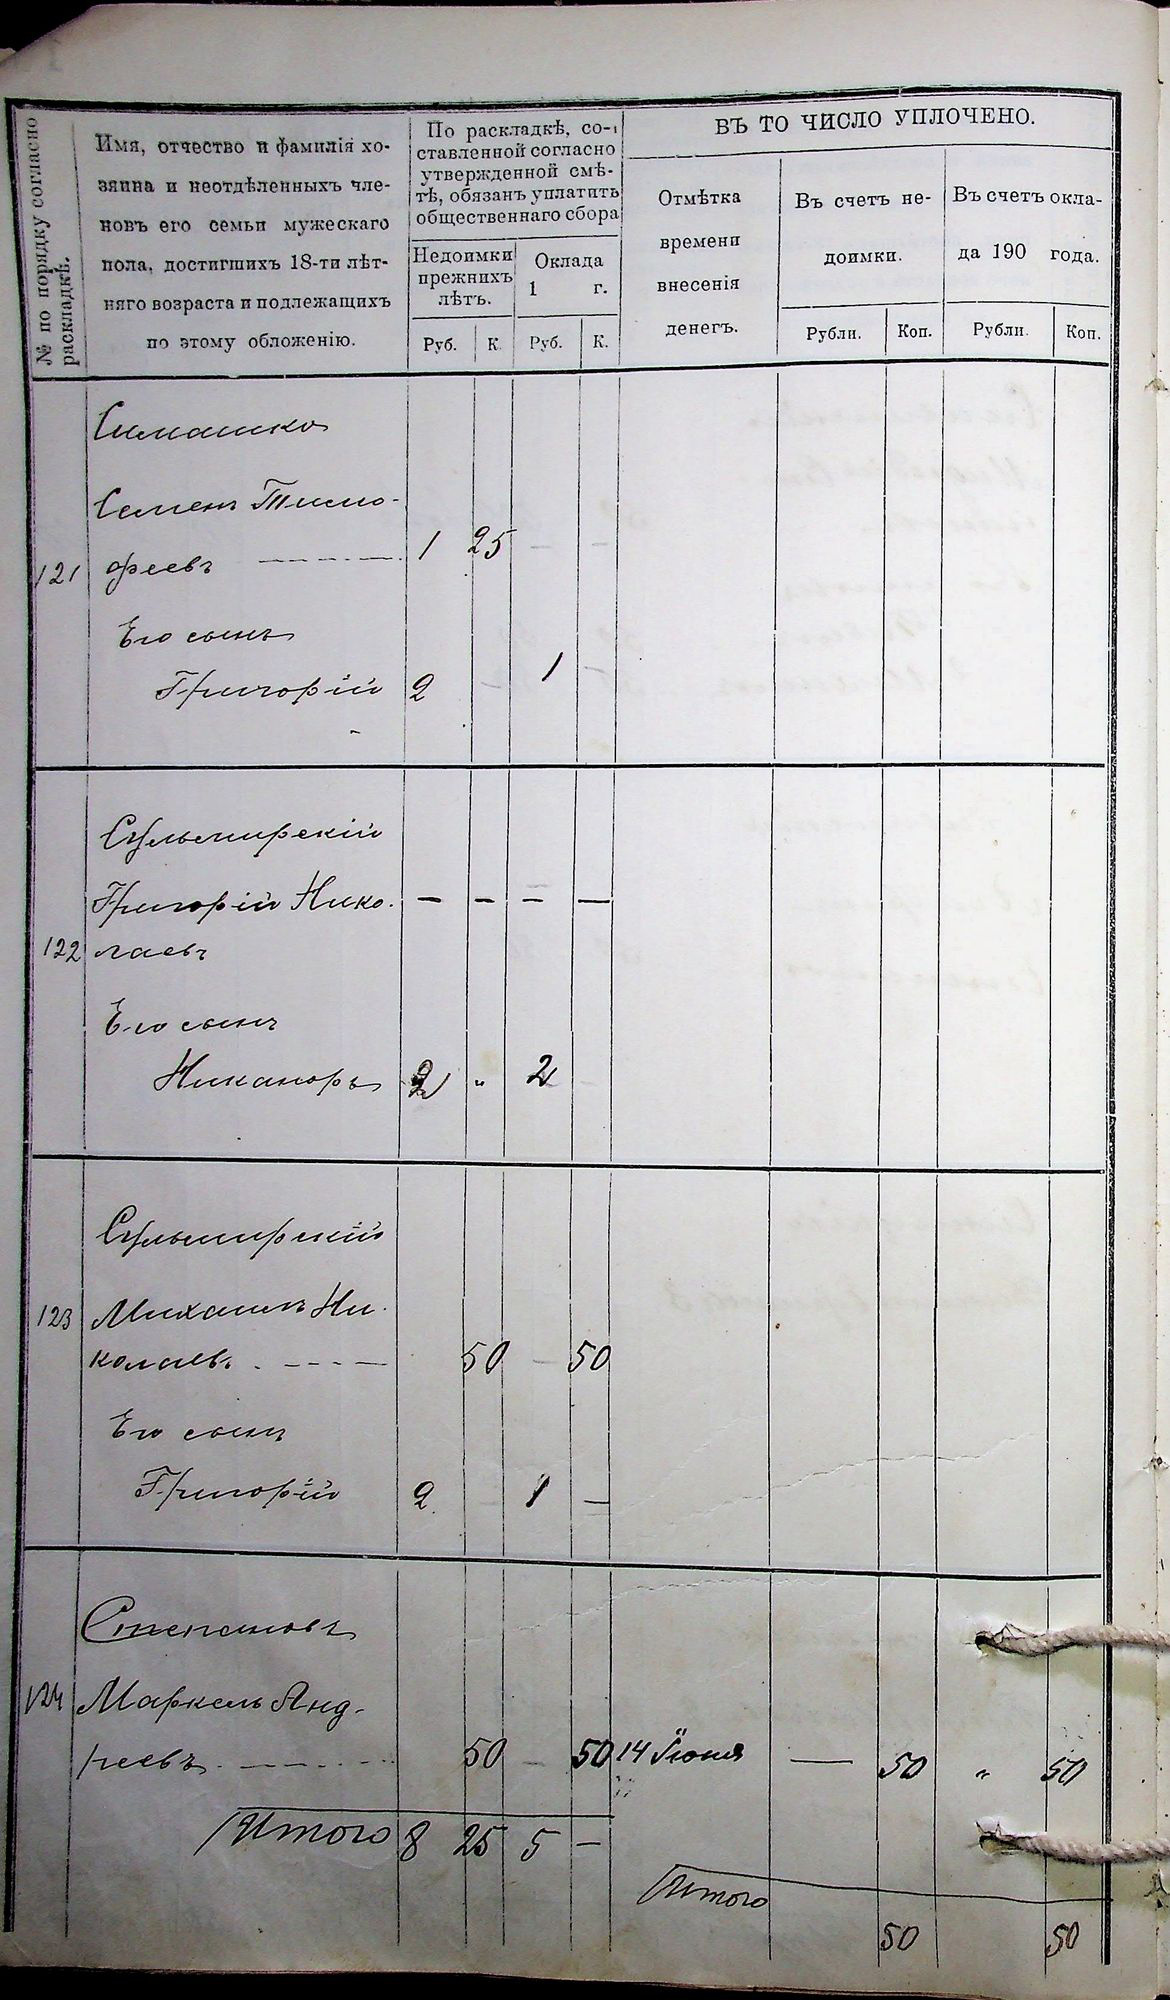 № по порядку согласно
раскладкѣ.
Имя, отчество и фамилія хо-
зяина и неотдѣленныхъ чле-
новъ его семьи мужескаго
пола, достигшихъ 18-ти лѣт-
няго возраста и подлежащихъ
по этому обложенію.
По раскладкѣ, со-
ставленной согласно
утвержденной смѣ-
тѣ, обязанъ уплатить
общественнаго сбора
Недоимки
прежнихъ
лѣтъ.
Оклада
1 г.
Руб. К. Руб. К.
ВЪ ТО ЧИСЛО УПЛОЧЕНО.
Отмѣтка
времени
внесенія
денегъ.
Въ счетъ не-
доимки.
Въ счетъ окла-
да 190 года.
Рубли. Коп. Рубли. Коп.
Симашко
Семенъ Тимо-
121 феевъ 1 25 — —
Его сынъ
Григорій 2 — 1 —
Сульжирскій
Григорій Нико- — — — —
122 лаевъ
Его сынъ
Никаноръ 2 „ 2 —
Сульжирскій
123 Михаилъ Ни-
колаевъ 50 — 50
Его сынъ
Григорій 2 — 1 —
Степановъ
124 Маркелъ Анд-
реевъ 50 — 50 14 Іюня — 50 „ 50
Итого 8 25 5 —
Итого
50 50